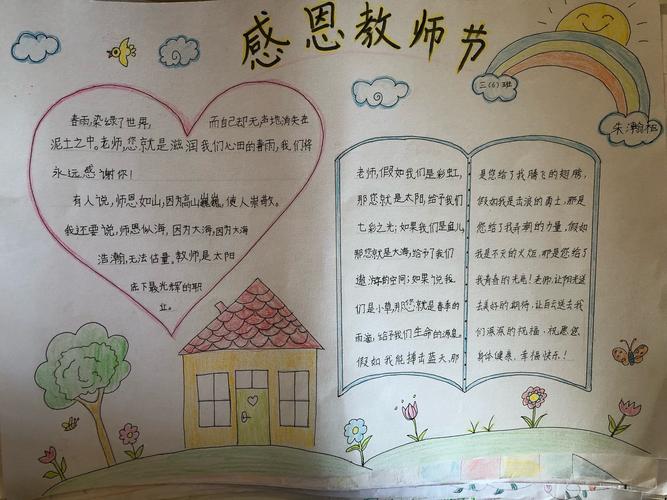 感恩教师节
三(6)班
朱瀚植
春雨,染绿了世界, 而自己却无声地消失在
泥土之中。老师,您就是滋润我们心田的春雨,我们将
永远感谢你!
有人说,师恩如山,因为高山巍巍,使人崇敬。
我还要说,师恩似海,因为大海,因为大海
浩瀚,无法估量。教师,是太阳
底下最光辉的职
业。
老师,假如我们是彩虹,
那您就是太阳,给予我们
七彩之光;如果我们是鱼儿,
那您就是大海,给予了我们
遨游的空间;如果说我
们是小草,那您就是春季的
雨滴,给予我们生命的源泉。
假如我能搏击蓝天,那
是您给了我腾飞的翅膀,
假如我是击浪的勇士,那是
您给了我弄潮的力量,假如
我是不灭的火炬,那是您给了
我青春的光亮!老师,让阳光送
去美好的期待,让白云送去我
们深深的祝福,祝愿您
身体健康、幸福快乐!